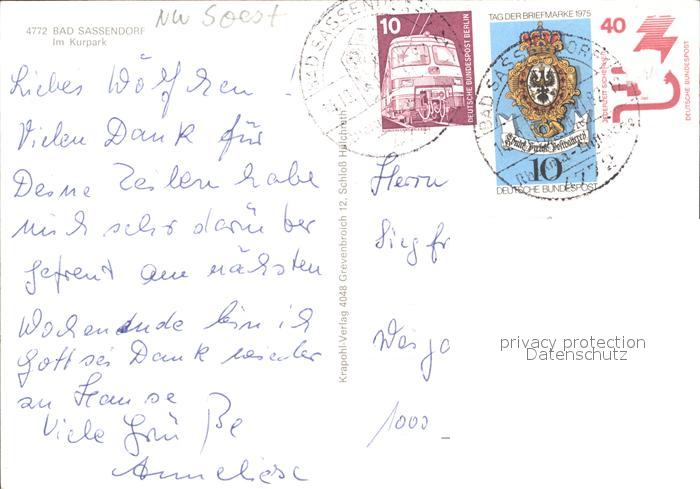 NW Soest
4772 BAD SASSENDORF
Im Kurpark
Liebes Wölfchen!
Vielen Dank für
Deine Zeilen habe
mich sehr darüber
gefreut am nächsten
Wochenende bin ich
Gott sei Dank wieder
zu Hause
Viele Grüße
Anneliese
Krapohl-Verlag 4048 Grevenbroich 12, Schloß Hülchrath
10
DEUTSCHE BUNDESPOST BERLIN
TAG DER BRIEFMARKE 1975
10
DEUTSCHE BUNDESPOST
40
JEDERZEIT SICHERHEIT
DEUTSCHE BUNDESPOST
BAD SASSENDORF
BAD SASSENDORF
4772
Herrn
Siegfr
1000
privacy protection
Datenschutz